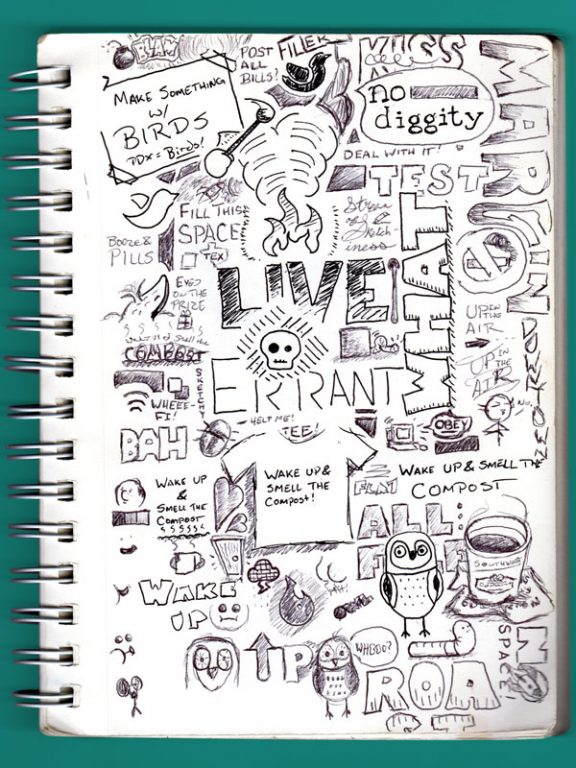 BLAM
POST
ALL
BILLS?
FILLER
KISS
MAKE SOMETHING
W/
BIRDS
PDX = Birds!
no
diggity
MARGIN
DEAL WITH IT!
TEST
FILL THIS
SPACE
TEX
BOOZE &
PILLS
WHAT
EYES
ON THE
PRIZE
LIVE
UP IN
IT THIS
AIR
UP IN
THE
AIR
COMPOST
SKETCHY
ERRANT
WHEEE-
FI!
HELP ME!
TEE!
OBEY
NO.
BAH
WAKE UP
&
SMELL THE
COMPOST
WAKE UP &
SMELL THE
COMPOST!
WAKE UP & SMELL THE
COMPOST
FLAT
ALL
SOUTHWEST
WAKE
UP
IN
SPACE!
UP
WHOOO?
ROA